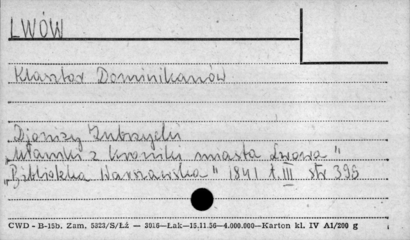 LWÓW
Klasztor Dominikanów
Djonizy Zubrzycki
"Ułamki z kroniki miasta Lwowa"
"Biblioteka Warszawska" 1841 t. III str 395
CWD - B-15b. Zam. 5323/S/Łź — 3016—Łak—15.11.56—4.000.000—Karton kl. IV A1/200 g